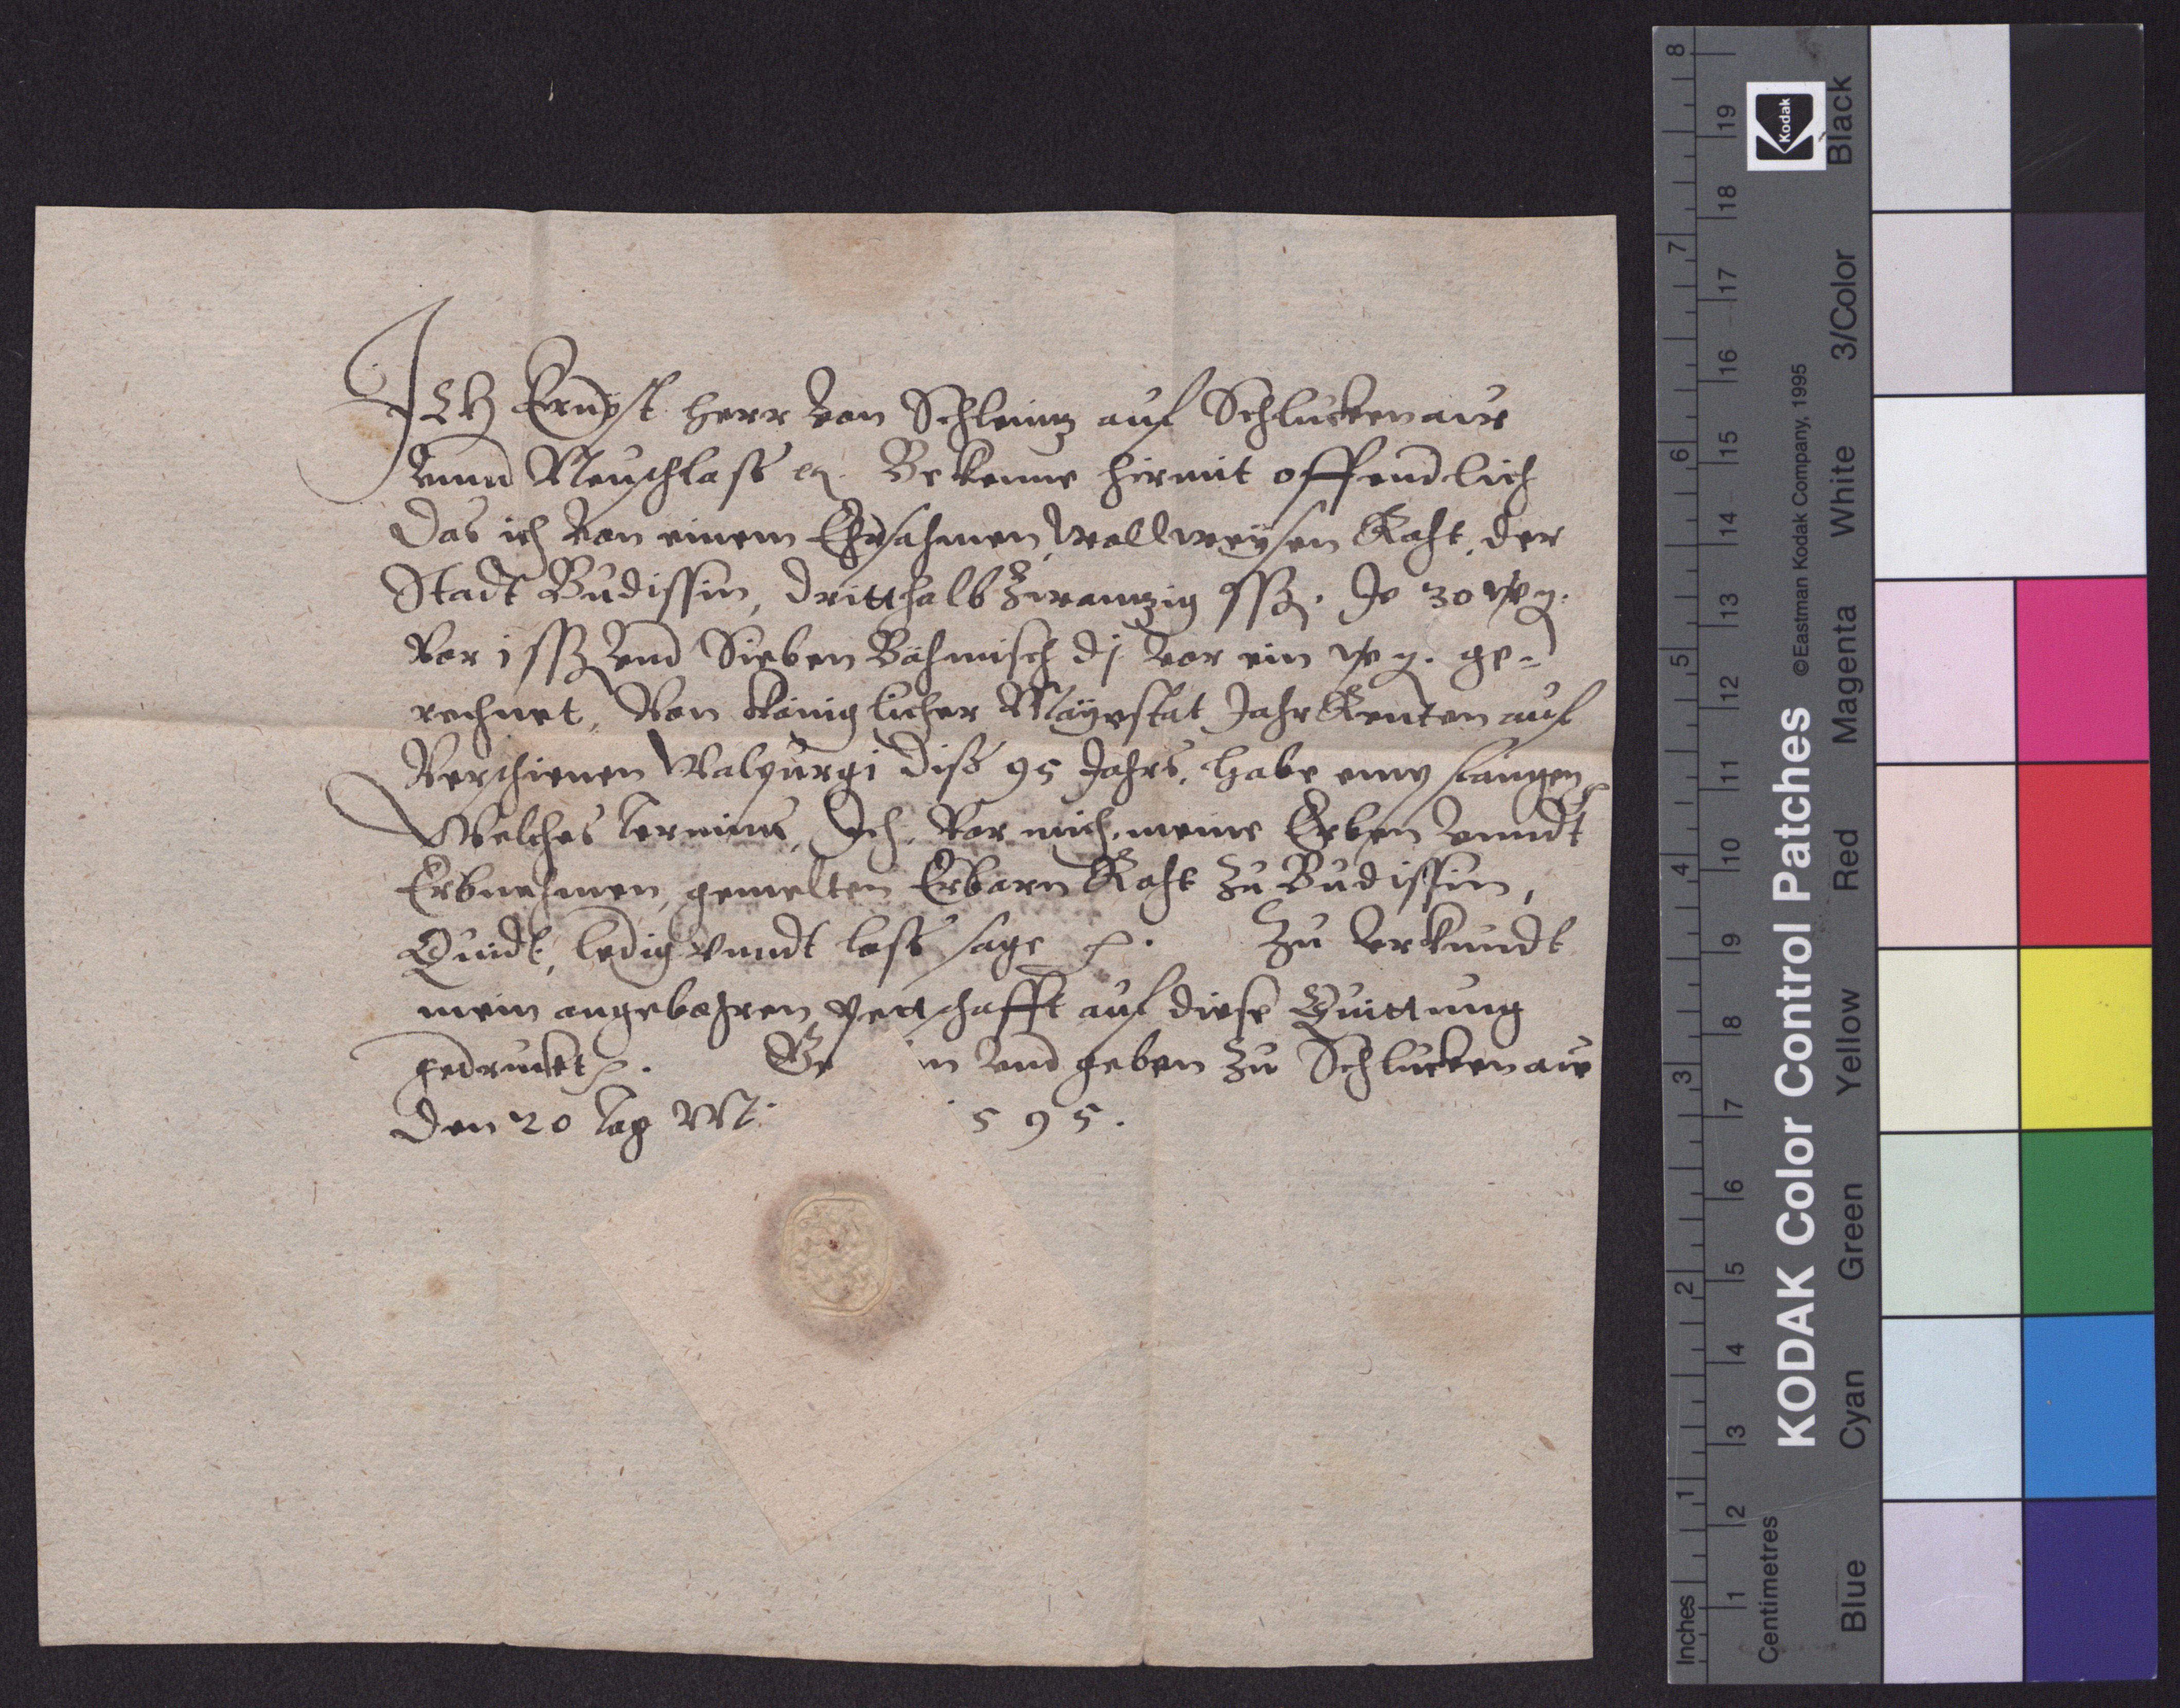 Ich Ernst herr von Schleinitz auf Schluckenaw
vnnd Neuschlass ec. Bekenne hirmit offendlich
Das ich von einem Ehrsahmen, wollweysen Raht, der
Stadt Budissin, dritthalb Zwanzig ßß. Je 30 wg.
vor 1 ßß vnd Sieben Böhmisch dj vor ein wg. ge-
rechnet, Von Königlicher Mayestat Jahr Renten auf
Verschienen Walpurgi diss 95 Jahrs, habe empfangen
Welches termins, Ich, vor mich, meine Erben vnndt
Erbnehmen, gemelten Erbarn Raht zu Budissin,
Quidt, ledig vnndt loss sage Zu vrkundt
mein angebohren pettschafft auf diese Quittung
gedruckt. Ge n vnd geben zu Schluckenaw
Den 20 tag M 595.
Inches 1 2 3 4 5 6 7 8
Centimetres 1 2 3 4 5 6 7 8 9 10 11 12 13 14 15 16 17 18 19
KODAK Color Control Patches ©Eastman Kodak Company, 1995
Kodak
Blue Cyan Green Yellow Red Magenta White 3/Color Black